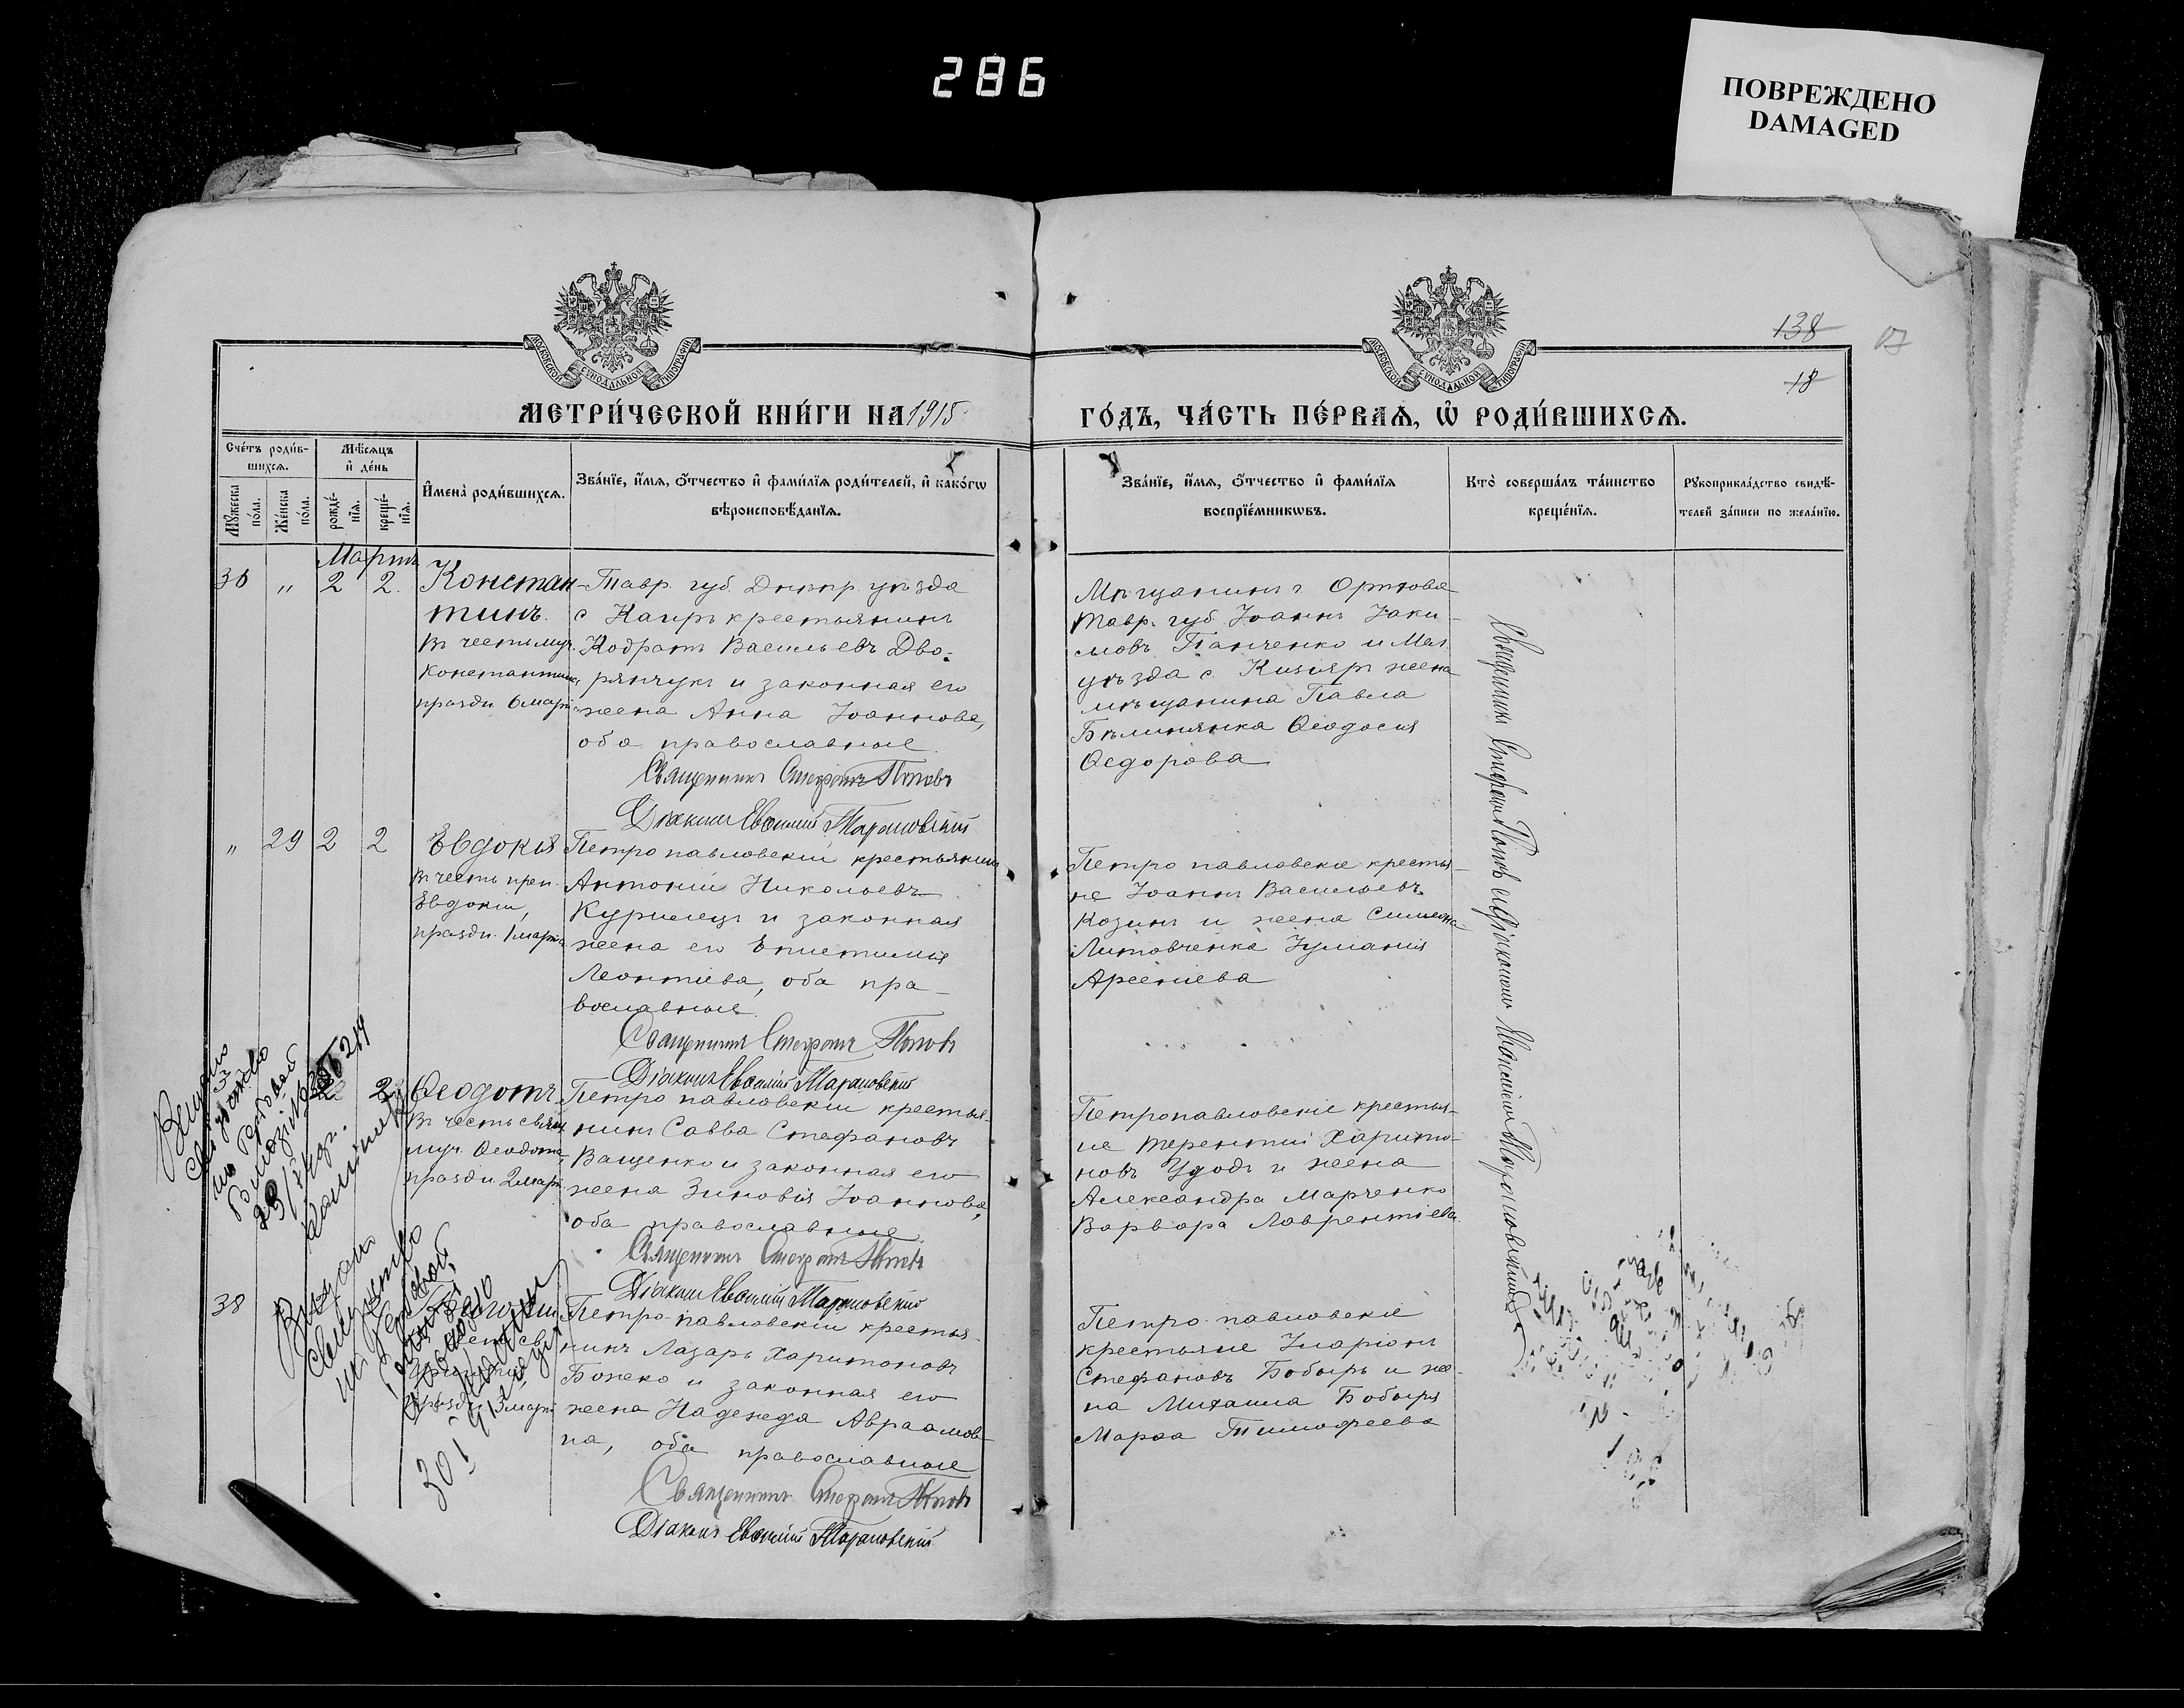 286
ПОВРЕЖДЕНО
DAMAGED
138
17
18
МОСКОВСКОЙ СѴНОДАЛЬНОЙ ТИПОГРАФІИ
МОСКОВСКОЙ СѴНОДАЛЬНОЙ ТИПОГРАФІИ
МЕТРИ́ЧЕСКОЙ КНИ́ГИ НА 1915
ГО́ДЪ, ЧА́СТЬ ПЕ́РВАѦ, Ѽ РОДИ́ВШИХСѦ.
Сче́тъ роди́в-
шихсѧ.
Мѣ́сѧцъ
и҆ де́нь
Мꙋ́жеска по́ла.
Же́нска по́ла.
рожде́-
нїѧ.
креще́-
нїѧ.
И҆мена̀ роди́вшихсѧ.
Зва́нїе, и҆́мѧ, о҆́тчество и҆ фами́лїѧ роди́телей, и҆ како́гѡ
вѣроисповѣ́данїѧ.
Зва́нїе, и҆́мѧ, о҆́тчество и҆ фами́лїѧ
воспрїе́мникѡвъ.
Кто̀ соверша́лъ та́инство
креще́нїѧ.
Рꙋкоприкла́дство свидѣ́-
телей за́писи по жела́нїю.
Мартъ
36 " 2 2.
Констан-
тинъ.
въ честь муч.
Константина,
праздн. 6 март.
Тавр. губ. Днѣпр. уѣзда
с. Каиръ крестьянинъ
Кодратъ Васильевъ Дво-
рянчукъ и законная его
жена Анна Іоаннова,
оба православные.
Священникъ Стефанъ Поповъ
Діаконъ Евѳимій Тарановскій
Мѣщанинъ г. Орѣхова
Тавр. губ. Іоаннъ Іаки-
мовъ Панченко и Мел.
уѣзда с. Кизіяръ жена
мѣщанина Павла
Бѣлинянка Ѳеодосія
Ѳедорова
Священникъ Стефанъ Поповъ и Діакономъ Евѳиміемъ Тарановскимъ
" 29 2 2
Евдокія
въ честь преп.
Евдокіи,
праздн. 1 марта
Петропавловскій крестьянинъ
Антоній Николаевъ
Курилецъ и законная
жена его Епистимія
Леонтіева, оба пра-
вославные.
Священникъ Стефанъ Поповъ
Діаконъ Евѳимій Тарановскій
Петропавловскіе крестья-
не Іоаннъ Васильевъ
Козинъ и жена Симеона
Литовченка Іуліанія
Арсеніева
2
Ѳеодотъ
въ честь свящ.
муч. Ѳеодота,
праздн. 2 март.
Петропавловскій крестья-
нинъ Савва Стефановъ
Ващенко и законная его
жена Зиновія Іоаннова,
оба православные
Священникъ Стефанъ Поповъ
Діаконъ Евѳимій Тарановскій
Петропавловскіе крестья-
не Терентій Харито-
новъ Удодъ и жена
Александра Марченко
Варвара Лаврентіева
38
праздн. 3 март.
Петропавловскій крестья-
нинъ Лазарь Харитоновъ
Божко и законная его
жена Надежда Авраамов-
на, оба православные
Священникъ Стефанъ Поповъ
Діаконъ Евѳимій Тарановскій
Петропавловскіе
крестьяне Иларіонъ
Стефановъ Бобырь и же-
на Михаила Бобыря
Марѳа Тимофеева